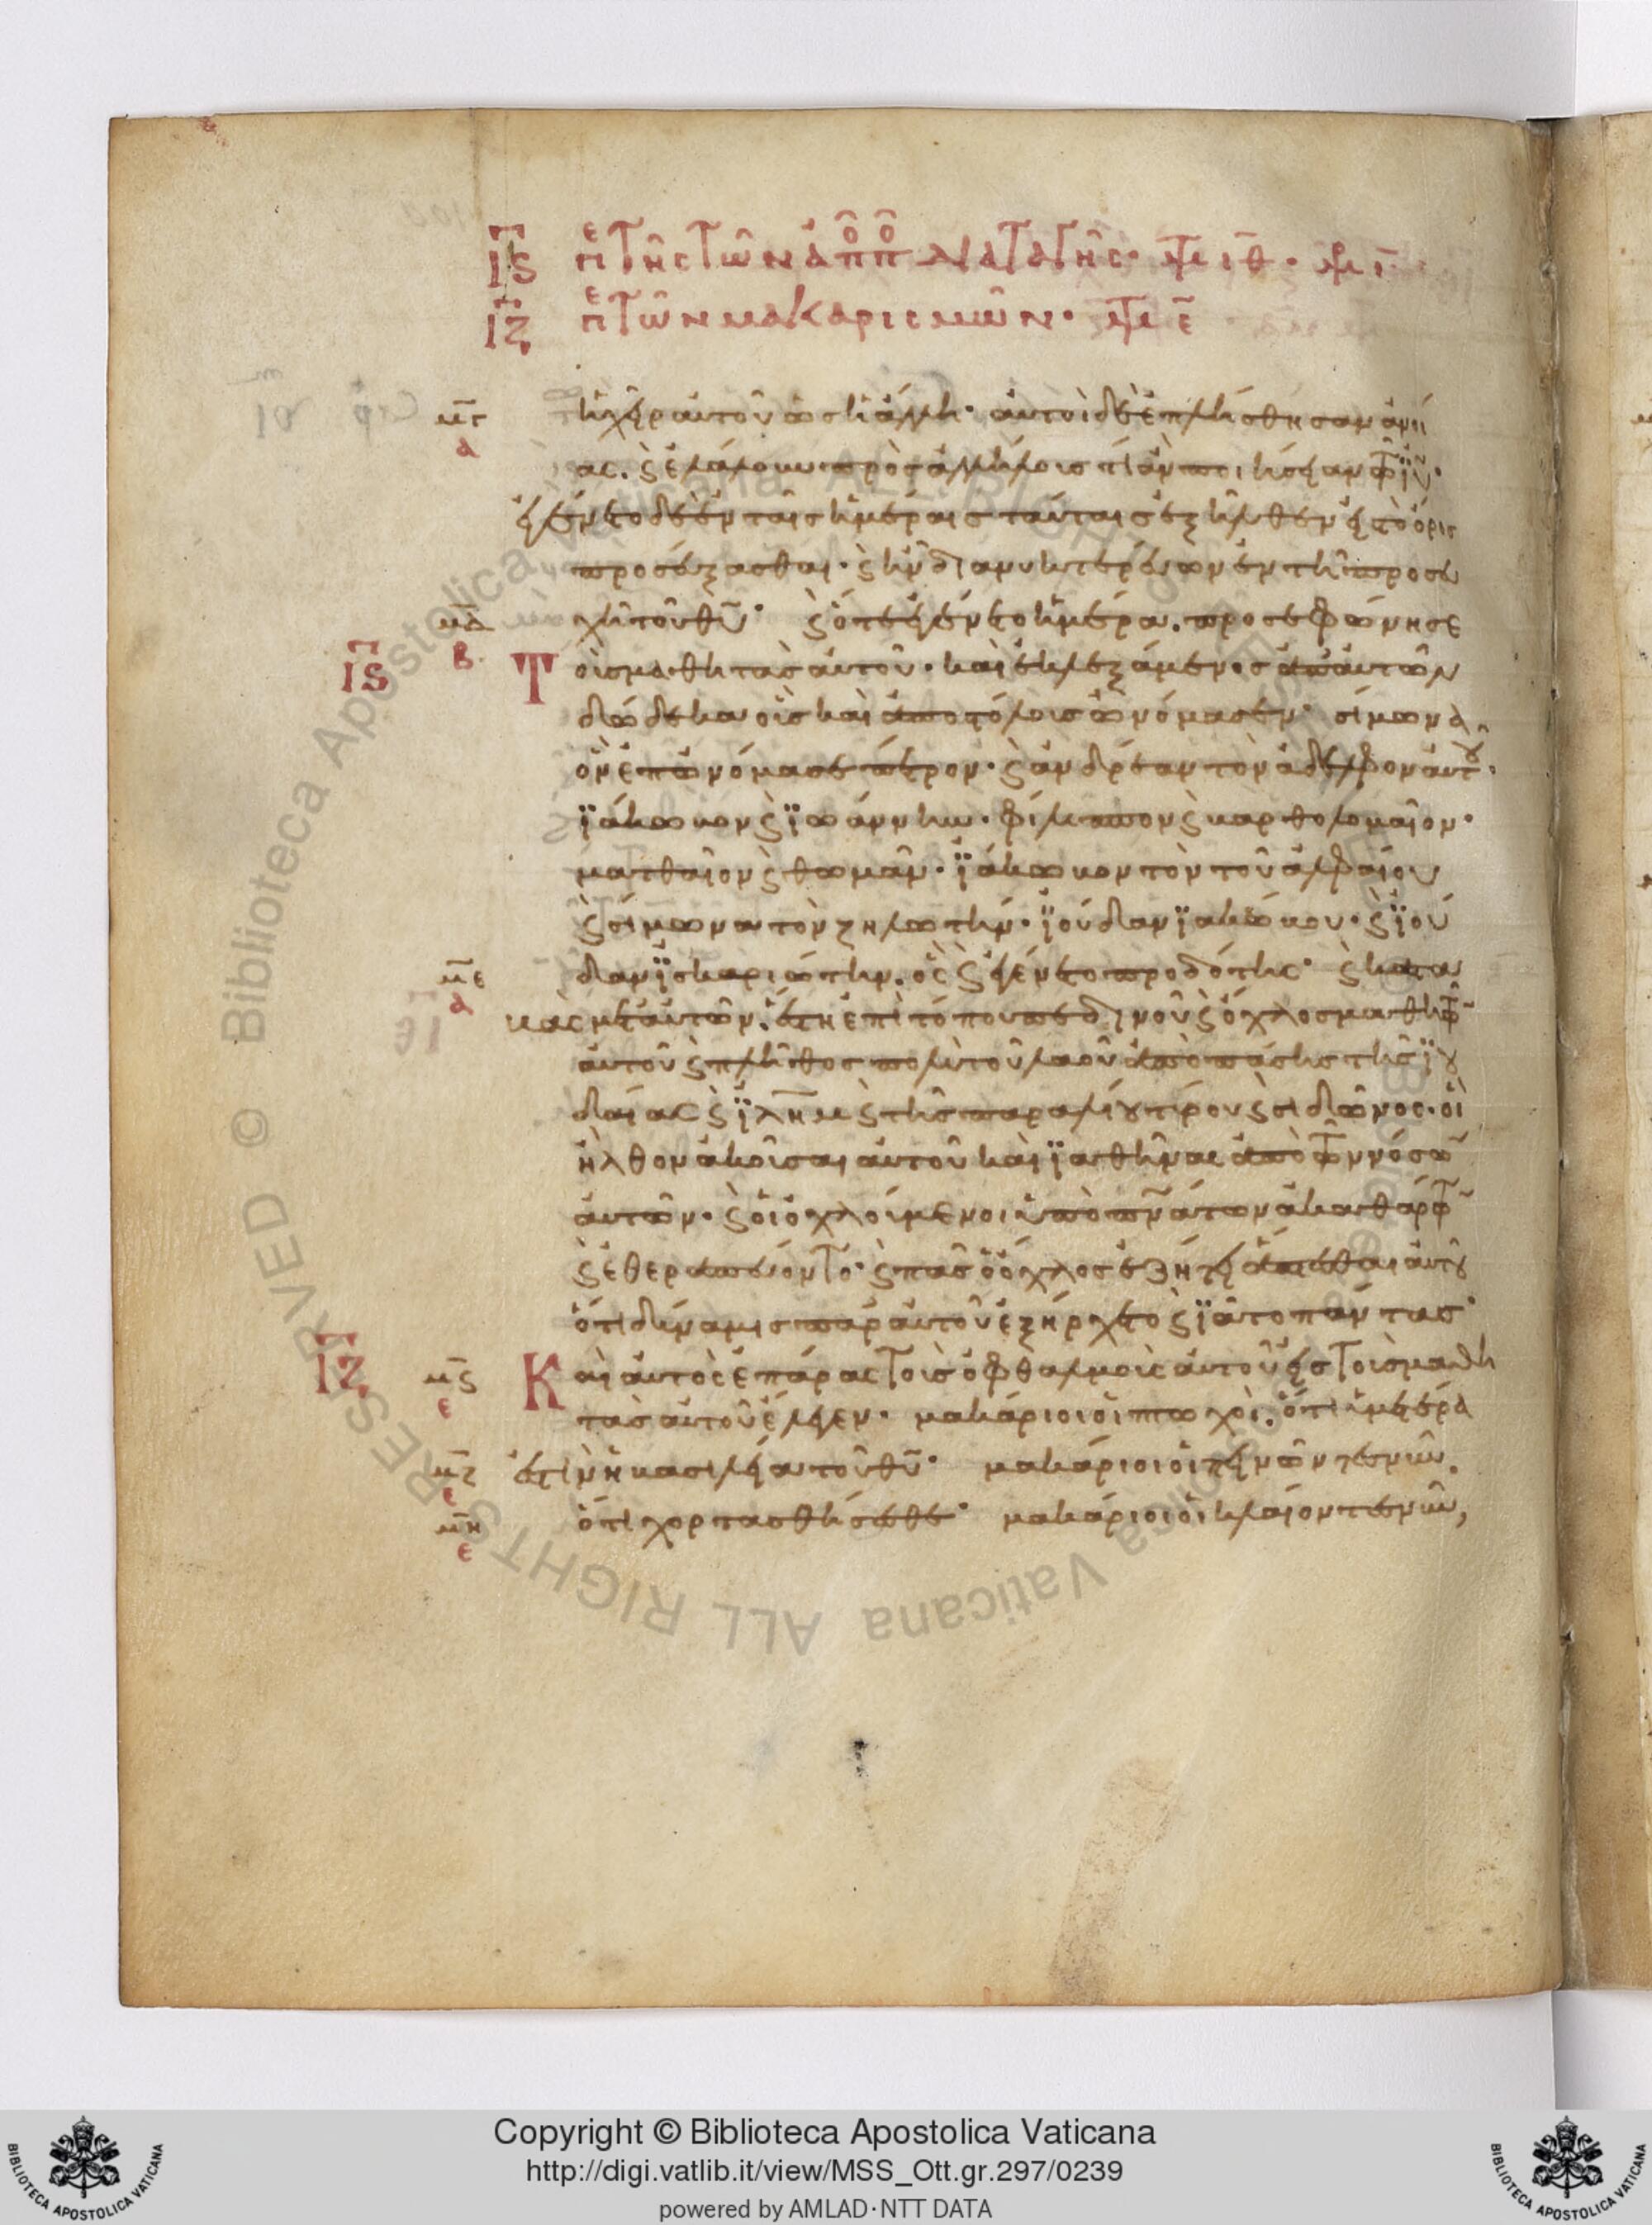 ΙϚ πε τῆς τῶν ἀποπο λων διαταγῆς·
ΙΖ πε τῶν μακαρισμῶν·
μγ α ἡ χεὶρ αὐτοῦ ὡς ἡ ἄλλη· αὐτοὶ δὲ ἐπλήσθησαν ἀνοί
ας. ϗ ἐλάλουν πρὸς ἀλλήλοις τί ἂν ποιήσειαν τῶ ιυ·
ἐγένετο δὲ ἐν ταῖς ἡμέραις ταύταις ἐξῆλθεν εἰς τὸ ὄρος
προσεύξασθαι· ϗ ἦν διανυκτερεύων ἐν τῆ προσευ
μδ β χῆ τοῦ θυ· ϗ ὅτε ἐγένετο ἡμέρα. προσεφώνησε
ΙϚ Τοὺς μαθητὰς αὐτοῦ· καὶ ἐκλεξάμενος ἀπ αὐτῶν
δώδεκα οὓς καὶ ἀποστόλους ὠνόμασεν· σίμωνα
ὃν ἐπωνόμασε πέτρον· ϗ ἀνδρέαν τὸν ἀδελφὸν αὐτοῦ·
ϊάκωβον ϗ ϊωάννην· φίλιππον ϗ βαρθολομαῖον·
ματθαῖον ϗ θωμᾶν· ϊάκωβον τὸν τοῦ ἀλφαίου
ϗ σίμωνα τὸν ζηλωτήν· ϊούδαν ϊακώβου· ϗ ϊού
με α δαν ϊσκαριώτην. ὃς ϗ ἐγένετο προδότης· ϗ κατα
βὰς μετ αὐτῶν. ἔστη ἐπὶ τόπου πεδινοῦ ϗ ὄχλος μαθητῶν
αὐτοῦ ϗ πλῆθος πολὺ τοῦ λαοῦ ἀπὸ πάσης τῆς ϊου
δαίας ϗ ϊλημ ϗ τῆς παραλίου τύρου ϗ σιδῶνος· οἳ
ἦλθον ἀκοῦσαι αὐτοῦ καὶ ϊαθῆναι ἀπὸ τῶν νόσων
αὐτῶν· ϗ οἱ ὀχλούμενοι ὑπὸ πνάτων ἀκαθάρτων
ϗ ἐθεραπεύοντο· ϗ πᾶς ὁ ὄχλος ἐζήτει ἅπτεσθαι αὐτοῦ
ὅτι δύναμις παρ αὐτοῦ ἐξήρχετο ϗ ϊᾶτο πάντας·
ΙΖ μϛ ε Καὶ αὐτὸς ἐπάρας τοὺς ὀφθαλμοὺς αὐτοῦ εἰς τοὺς μαθη
τὰς αὐτοῦ ἔλεγεν· μακάριοι οἱ πτωχοὶ. ὅτι ὑμετέρα
μζ ε ἐστὶν ἡ βασιλεία τοῦ θυ· μακάριοι οἱ πεινῶντες νῦν.
μη ε ὅτι χορτασθήσεσθε· μακάριοι οἱ κλαίοντες νῦν,
Copyright © Biblioteca Apostolica Vaticana
http://digi.vatlib.it/view/MSS_Ott.gr.297/0239
powered by AMLAD·NTT DATA